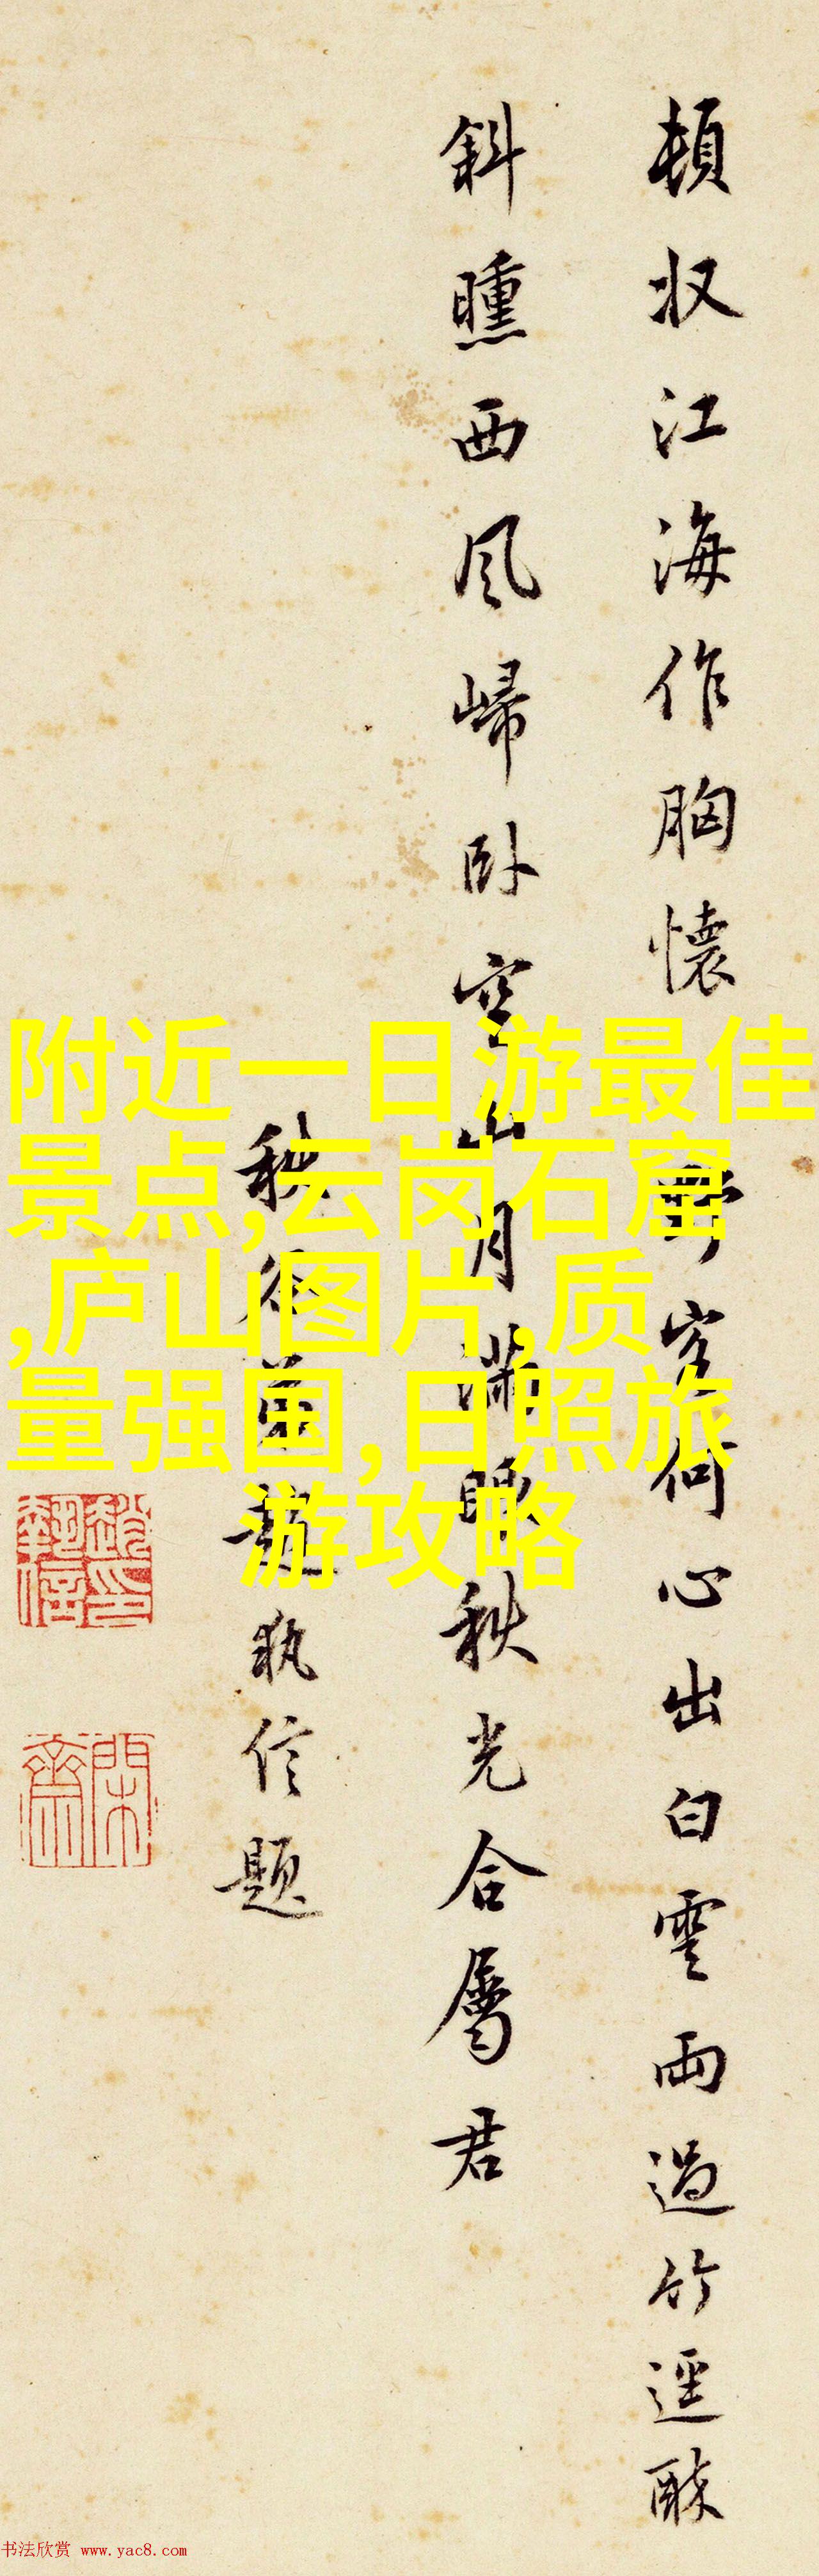 頓收江海作胸懷
野客何心出白雲雨過竹逕醉
斜曛西風歸卧空山月滿眼秋光合屬君
秋谷弟趙執信題
附近一日游最佳
景点,云岗石窟
,庐山图片,质
量强国,日照旅
游攻略
书法欣赏 www.yac8.com